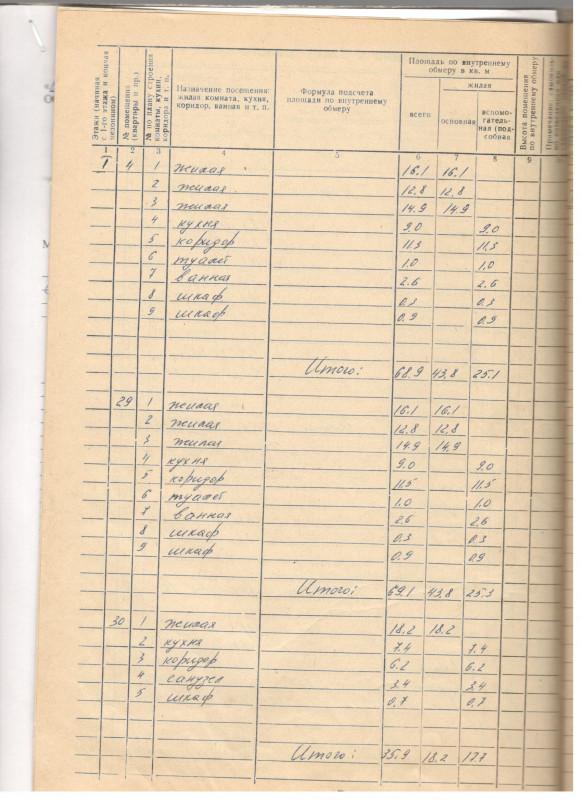 Этажи (начиная с 1-го этажа и кончая мезонином)
№ помещения (квартиры и пр.)
№ по плану строения комнаты, кухни, коридора и т. п.
Назначение посещения: жилая комната, кухня, коридор, ванная и т. п.
Формула подсчета площади по внутреннему обмеру
Площадь по внутреннему обмеру в кв. м
всего
жилая
основная
вспомогательная (подсобная
Высота помещения по внутреннему обмеру
1 2 3 4 5 6 7 8 9
1 4 1 жилая 16.1 16.1
2 жилая 12,8 12,8
3 жилая 14.9 14,9
4 кухня 9.0 9.0
5 коридор 11,3 11,3
6 туалет 1.0 1.0
7 ванная 2.6 2.6
8 шкаф 0.3 0.3
9 шкаф 0.9 0.9
Итого: 68.9 43,8 25.1
29 1 жилая 16.1 16.1
2 жилая 12,8 12,8
3 жилая 14.9 14,9
4 кухня 9.0 9.0
5 коридор 11.5 11.5
6 туалет 1.0 1.0
7 ванная 2.6 2.6
8 шкаф 0.3 0.3
9 шкаф 0.9 0.9
Итого: 69.1 43,8 25.3
30 1 жилая 18.2 18.2
2 кухня 7.4 7.4
3 коридор 6.2 6.2
4 санузел 3.4 3.4
5 шкаф 0.7 0.7
Итого: 35.9 18.2 17.7